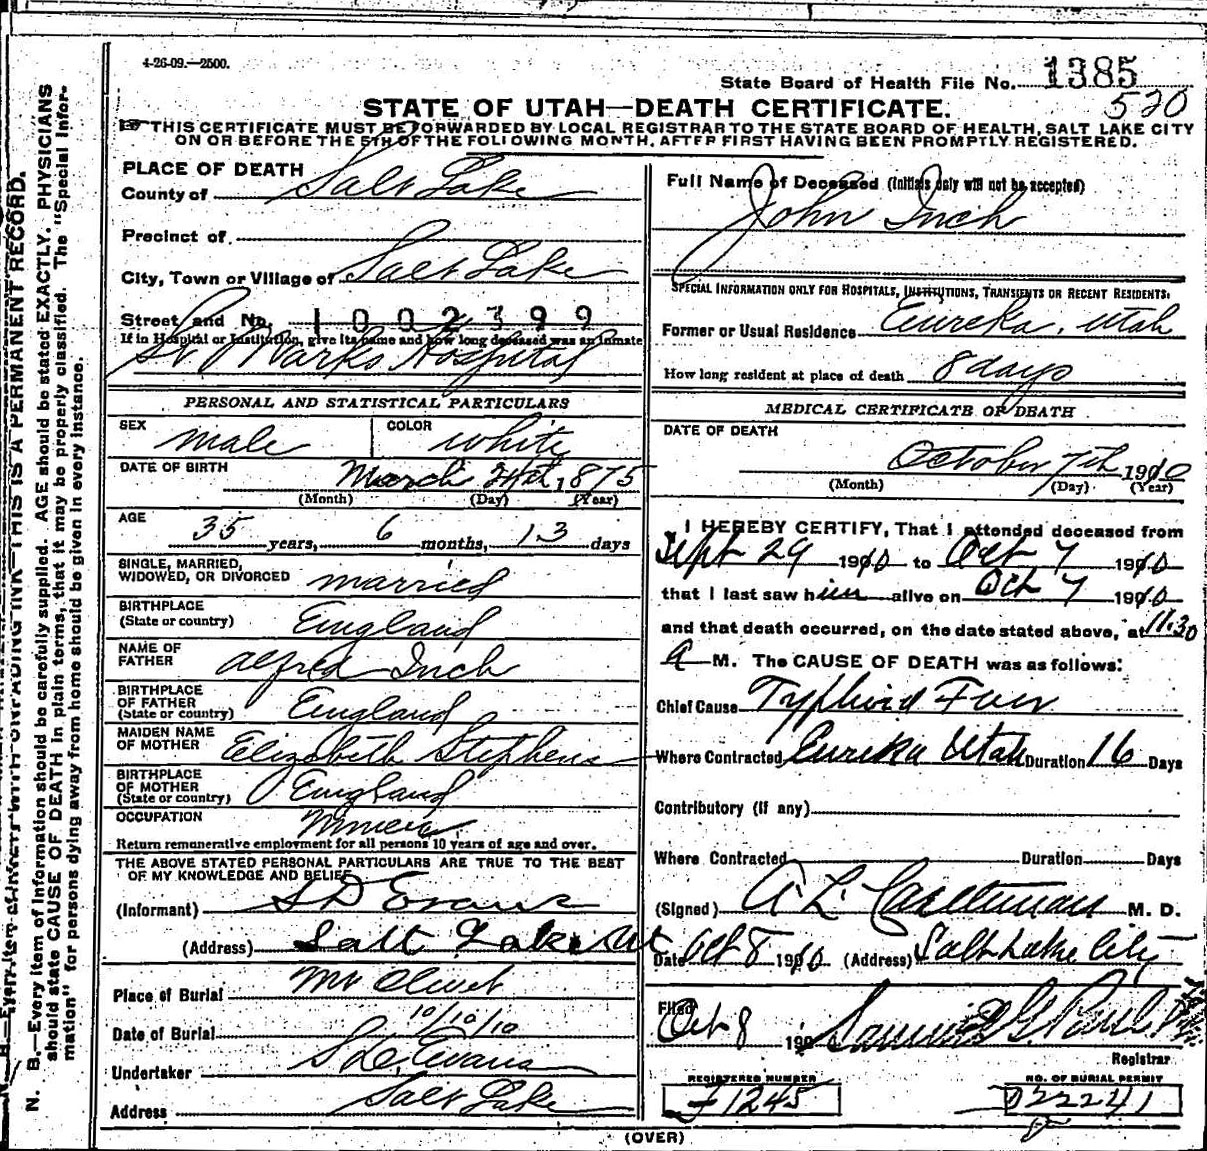 4-26-09.—2500.
State Board of Health File No. 1385
520
STATE OF UTAH—DEATH CERTIFICATE.
THIS CERTIFICATE MUST BE FORWARDED BY LOCAL REGISTRAR TO THE STATE BOARD OF HEALTH, SALT LAKE CITY
ON OR BEFORE THE 5TH OF THE FOLLOWING MONTH, AFTER FIRST HAVING BEEN PROMPTLY REGISTERED.
PLACE OF DEATH
County of Salt Lake
Precinct of
City, Town or Village of Salt Lake
Street and No. 1002399
If in Hospital or Institution, give its name and how long deceased was an inmate
St Marks Hospital
PERSONAL AND STATISTICAL PARTICULARS
SEX male COLOR white
DATE OF BIRTH March 24th, 1875
(Month) (Day) (Year)
AGE
35 years, 6 months, 13 days
SINGLE, MARRIED,
WIDOWED, OR DIVORCED married
BIRTHPLACE
(State or country) England
NAME OF
FATHER Alfred Inch
BIRTHPLACE
OF FATHER
(State or country) England
MAIDEN NAME
OF MOTHER Elizabeth Stephens
BIRTHPLACE
OF MOTHER
(State or country) England
OCCUPATION
Return remunerative employment for all persons 10 years of age and over.
THE ABOVE STATED PERSONAL PARTICULARS ARE TRUE TO THE BEST
OF MY KNOWLEDGE AND BELIEF
(Informant) S D Evans
(Address) Salt Lake Ut
Place of Burial Mt Olivet
Date of Burial 10/10/10
Undertaker S D Evans
Address Salt Lake
Full Name of Deceased (initials only will not be accepted)
John Inch
SPECIAL INFORMATION ONLY FOR HOSPITALS, INSTITUTIONS, TRANSIENTS OR RECENT RESIDENTS.
Former or Usual Residence Eureka, Utah
How long resident at place of death 8 days
MEDICAL CERTIFICATE OF DEATH
DATE OF DEATH
October 7th 1910
(Month) (Day) (Year)
I HEREBY CERTIFY, That I attended deceased from
Sept 29 1910 to Oct 7 1910
that I last saw him alive on Oct 7 1910
and that death occurred, on the date stated above, at 11.30
a M. The CAUSE OF DEATH was as follows:
Chief Cause Typhoid Fever
Where Contracted Eureka Utah Duration 16 Days
Contributory (if any)
Where Contracted Duration Days
(Signed) A L M. D.
Date Oct 8 1910 (Address) Salt Lake City
Filed
Oct 8 190 Samuel G. Paul
Registrar
REGISTERED NUMBER
1245
NO. OF BURIAL PERMIT
22241
(OVER)
N. B.—Every item of information should be carefully supplied. AGE should be stated EXACTLY. PHYSICIANS
should state CAUSE OF DEATH in plain terms, that it may be properly classified. The "Special Infor-
mation" for persons dying away from home should be given in every instance.
THIS IS A PERMANENT RECORD.